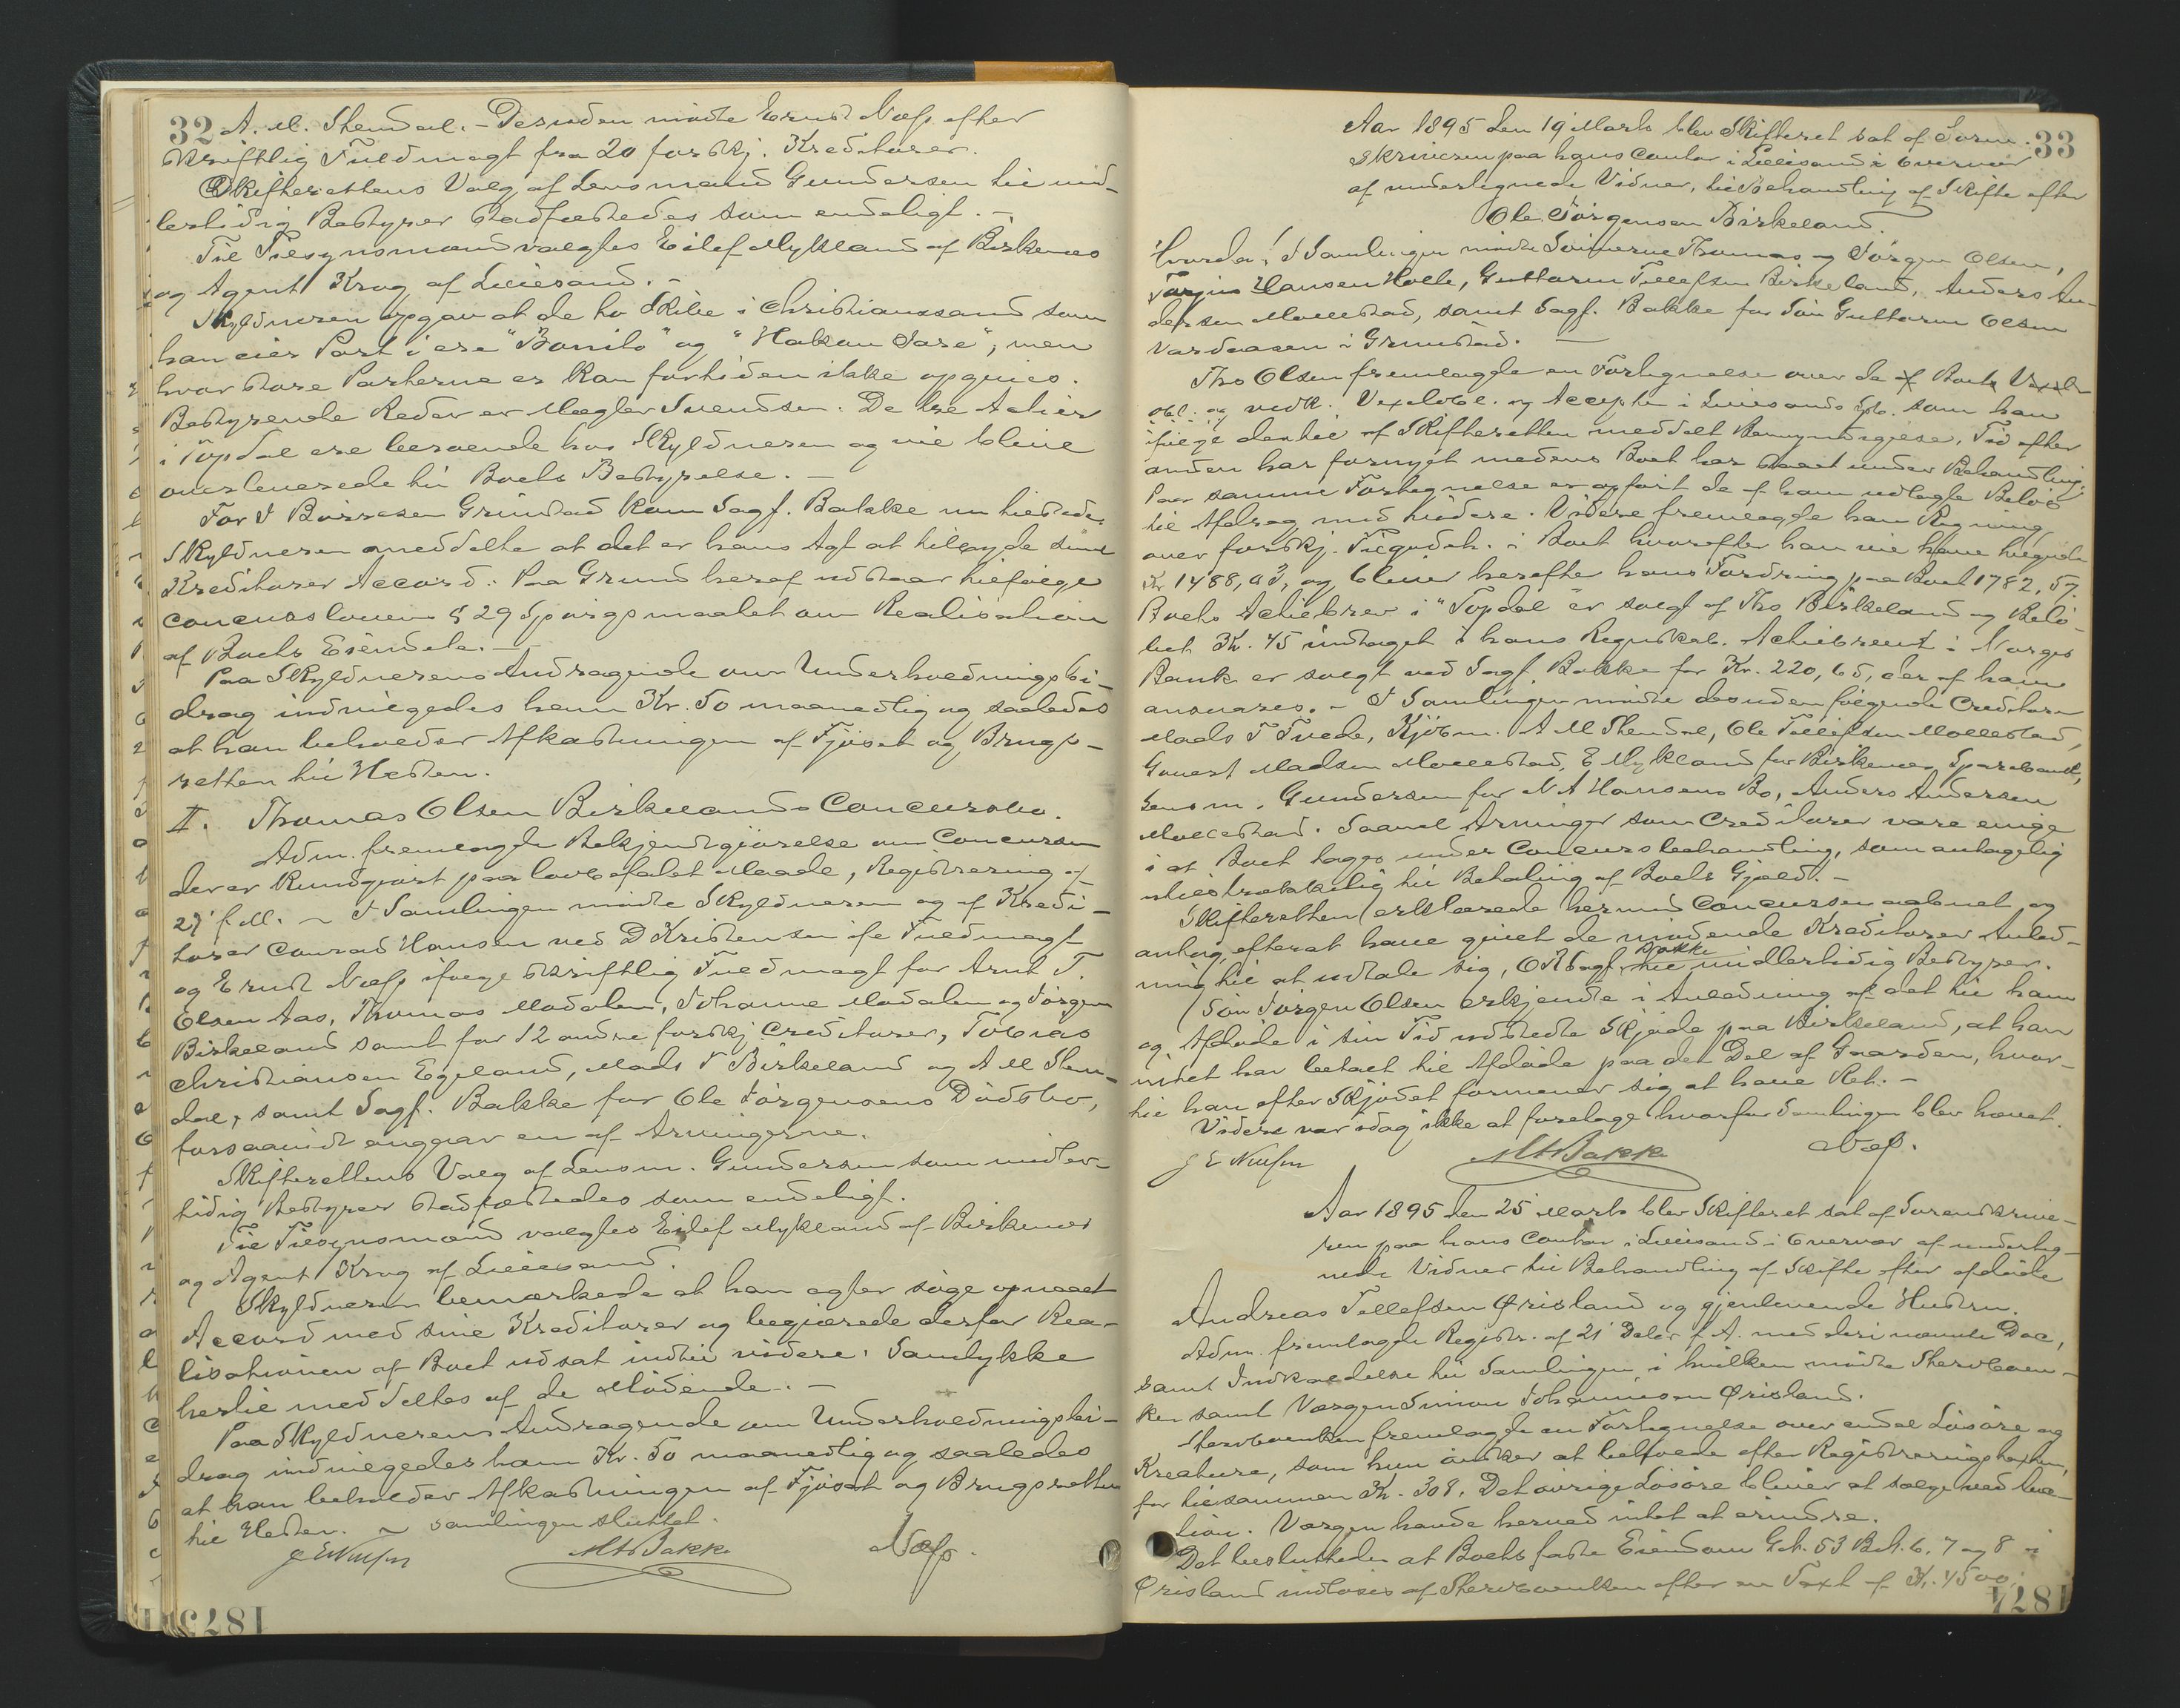 32
A. M. Stendal. - Desuden mødte Ernst Næss efter
skriftlig Fuldmagt fra 20 forskj. Kreditorer.
Skifterettens Valg af Lensmand Gundersen til mid-
lertidig Bestyrer stadfæstedes som endeligt. -
Til Tilsynsmænd valgtes Eilef Mykland af Birkenes
og Agent Krog af Lillesand. -
Skyldneren opgav at de to Skibe i Christianssand som
han eier Part i ere "Bonito" og "Hakon Jarl", men
hvor store Parterne er kan fortiden ikke opgives.
Bestyrende Reder er Mægler Svendsen. De tre Actier
i Topdal ere beroende hos Skyldneren og vil blive
overleverede til Boets Bestyrelse. -
For I Børresen Grimstad kom Sagf. Bakke nu tilstede.
Skyldneren meddelte at det er hans Agt at tilbyde sine
Kreditorer Accord. Paa Grund heraf udstaar ifølge
Concurslovens § 29 Spørgsmaalet om Realisation
af Boets Eiendele. -
Paa Skyldnerens Andragende om Underholdningsbi-
drag indvilgedes ham Kr. 50 maanedlig og saaledes
at han beholder Afkastningen af Fjøset og Brugs-
retten til Hesten.
II. Thomas Olsen Birkelands Concursbo.
Adm. fremlagde Bekjendtgjørelse om Concursen
der er kundgjort paa lovbefalet Maade, Registrering af
27' f. M. - I Samlingen mødte Skyldneren og af Kredi-
torer Conrad Hansen ved D Kristensen ifl Fuldmagt
og Ernst Næss ifølge skriftlig Fuldmagt for Arnt T.
Olsen Aas, Thomas Modalen, Johanne Modalen og Jørgen
Birkeland samt for 12 andre forskj. Creditorer, Tobias
Christiansen Egeland, Mads T Birkeland og A M Sten-
dal, samt Sagf. Bakke for Ole Jørgensens Dødsbo,
forsaavidt angaar en af Arvingerne.
Skifterettens Valg af Lensm. Gundersen som midler-
tidig Bestyrer stadfæstedes som endeligt.
Til Tilsynsmænd valgtes Eilef Mykland af Birkenes
og Agent Krog af Lillesand.
Skyldneren bemærkede at han agter søge opnaaet
Accord med sine Kreditorer og begjærede derfor Rea-
lisationen af Boet udsat indtil videre. Samtykke
hertil meddeltes af de Mødende. -
Paa Skyldnerens Andragende om Underholdningsbi-
drag indvilgedes ham Kr. 50 maanedlig og saaledes
at han beholder Afkastningen af Fjøset og Brugsretten
til Hesten. - Samlingen sluttet.
MABakke Næss.
33
Aar 1895 den 19 Marts blev Skifteret sat af Soren-
skriveren paa hans Contor i Lillesand i Overvær
af undertegnede Vidner, til Behandling af Skifte efter
Ole Jørgensen Birkeland.
Hvorda: I Samlingen mødte Sønnerne Thomas og Jørgen Olsen,
Terjus Hansen Holte, Guttorm Tellefsen Birkeland, Anders An-
dersen Mollestad, samt Sagf. Bakke for Søn Guttorm Olsen
Vardaasen i Grimstad. -
Ths Olsen fremlagde en Fortegnelse over de af Boets Vexel-
obl. og vedk. Vexelobl. og Accepter i Lillesands Spb. som han
ifølge dertil af Skifteretten meddelt Bemyndigelse, Tid efter
anden har fornyet medens Boet har staaet under Behandling.
Paa samme Fortegnelse er opført de af ham udlagte Beløb
til Afdrag med videre. Videre fremlagde han Regning
over forskj. Tilgodeh. i Boet hvorefter han vil have tilgode
Kr 1488,03, og bliver herefter hans Fordring paa Boet 1782,57.
Boets Actiebrev i "Topdal" er solgt af Ths Birkeland og Belø-
bet Kr. 45 indtaget i hans Regnskab. Actiebrevet i Norges
Bank er solgt ved Sagf. Bakke for Kr. 220,65, der af ham
ansvares. - I Samlingen mødte desuden følgende Creditorer
Mads T Tvede, Kjøbm. A M Stendal, Ole Tellefsen Mollestad,
Govert Madsen Mollestad, E Mykland for Birkenes Sparebank,
Lensm. Gundersen for N A Hansens Bo, Anders Andersen
Mollestad. Saavel Arvinger som Creditorer vare enige
i at Boet tages under Concursbehandling, som antagelig
utilstrækkelig til Betaling af Boets Gjæld. -
Skifteretten erklærede hermed Concursen aabnet og
antog, efterat have givet de mødende Kreditorer Anled-
ning til at udtale sig, ORSagf. Bakke til midlertidig Bestyrer.
Søn Jørgen Olsen erkjendte i Anledning af det til ham
og Afdøde i sin Tid udstedte Skjøde paa Birkeland, at han
intet har betalt til Afdøde paa den Del af Gaarden, hvor-
til han efter Skjødet formener sig at have Ret. -
Videre var idag ikke at foretage hvorfor Samlingen blev hævet.
MABakke Næss.
Aar 1895 den 25 Marts blev Skifteret sat af Sorenskrive-
ren paa hans Contor i Lillesand i Overvær af underteg-
nede Vidner til Behandling af Skifte efter afdøde
Andreas Tellefsen Ørisland og gjenlevende Hustru.
Adm. fremlagde Registr. af 21' Decbr f. A. med deri nævnte Doc,
samt Indkaldelse til Samlingen i hvilken mødte Stervboen-
ken samt Værgen Simon Johannesen Ørisland.
Stervboenken fremlagde en Fortegnelse over endel Løsøre og
Kreature, som hun ønsker at beholde efter Registreringstaxten,
for tilsammen Kr. 308. Det øvrige Løsøre bliver at sælge ved Auc-
tion. Værgen havde herved intet at erindre.
Det besluttedes at Boets faste Eiendom G.N. 53 B.N. 6, 7 og 8 i
Ørisland indløses af Stervboenken efter en Taxt af Kr. 4500,